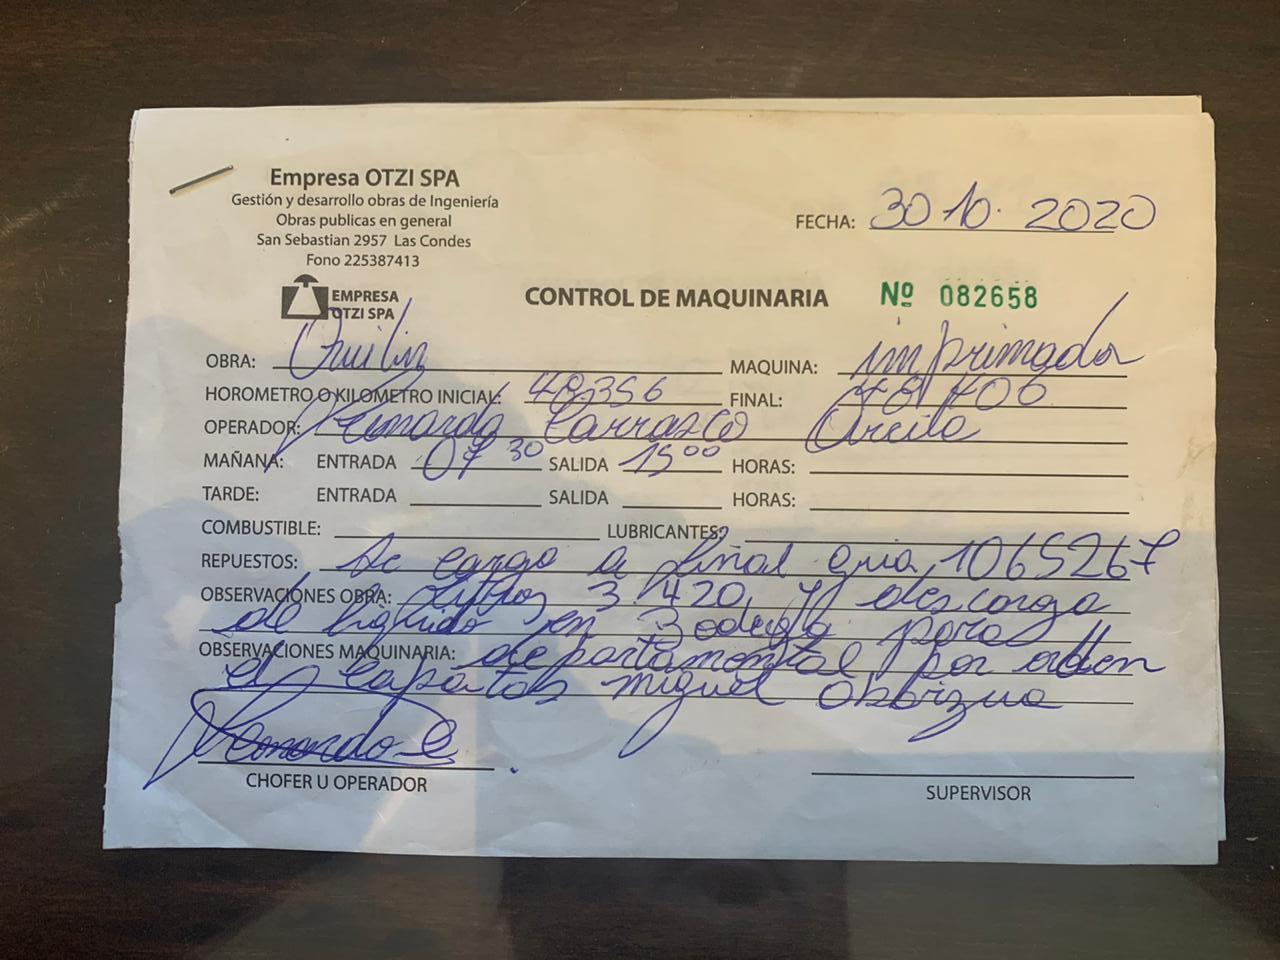 Empresa OTZI SPA
Gestión y desarrollo obras de Ingeniería
Obras publicas en general
San Sebastian 2957 Las Condes
Fono 225387413
FECHA: 30 10. 2020
EMPRESA
OTZI SPA
CONTROL DE MAQUINARIA
Nº 082658
OBRA: Quilin MAQUINA: imprimador
HOROMETRO O KILOMETRO INICIAL: 48.356 FINAL: 48406
OPERADOR: Leonardo Carrasco
MAÑANA: ENTRADA 07 30 SALIDA 15 00 HORAS:
TARDE: ENTRADA SALIDA HORAS:
COMBUSTIBLE: LUBRICANTES:
REPUESTOS: Se cargo a guia 1065267
OBSERVACIONES OBRA: Litros 3.420 y descarga
de liquido en Bodega para
OBSERVACIONES MAQUINARIA: departamental por orden
de capatas miguel
Leonardo C
CHOFER U OPERADOR
SUPERVISOR